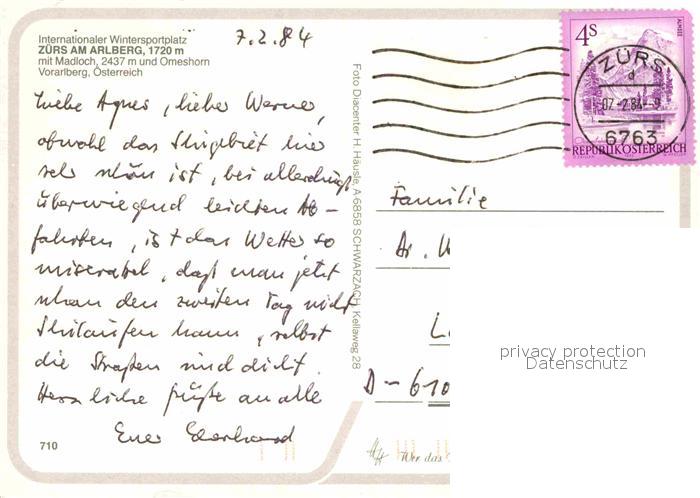 Internationaler Wintersportplatz
ZÜRS AM ARLBERG, 1720 m
mit Madloch, 2437 m und Omeshorn
Vorarlberg, Österreich
7.2.84
Liebe Agnes, lieber Werner,
obwohl das Skigebiet hier
sehr schön ist, bei allerdings
überwiegend leichten Ab-
fahrten, ist das Wetter so
miserabel, daß man jetzt
schon den zweiten Tag nicht
Skilaufen kann, selbst
die Straßen sind dicht.
Herzliche Grüße an alle
Euer Eberhard
710
Foto Diacenter H. Häusle, A-6858 SCHWARZACH, Kellaweg 28
4S
ALMSEE
REPUBLIK ÖSTERREICH
ZÜRS
d
07.-2.84-9
6763
Familie
D-610
Wer das
privacy protection
Datenschutz